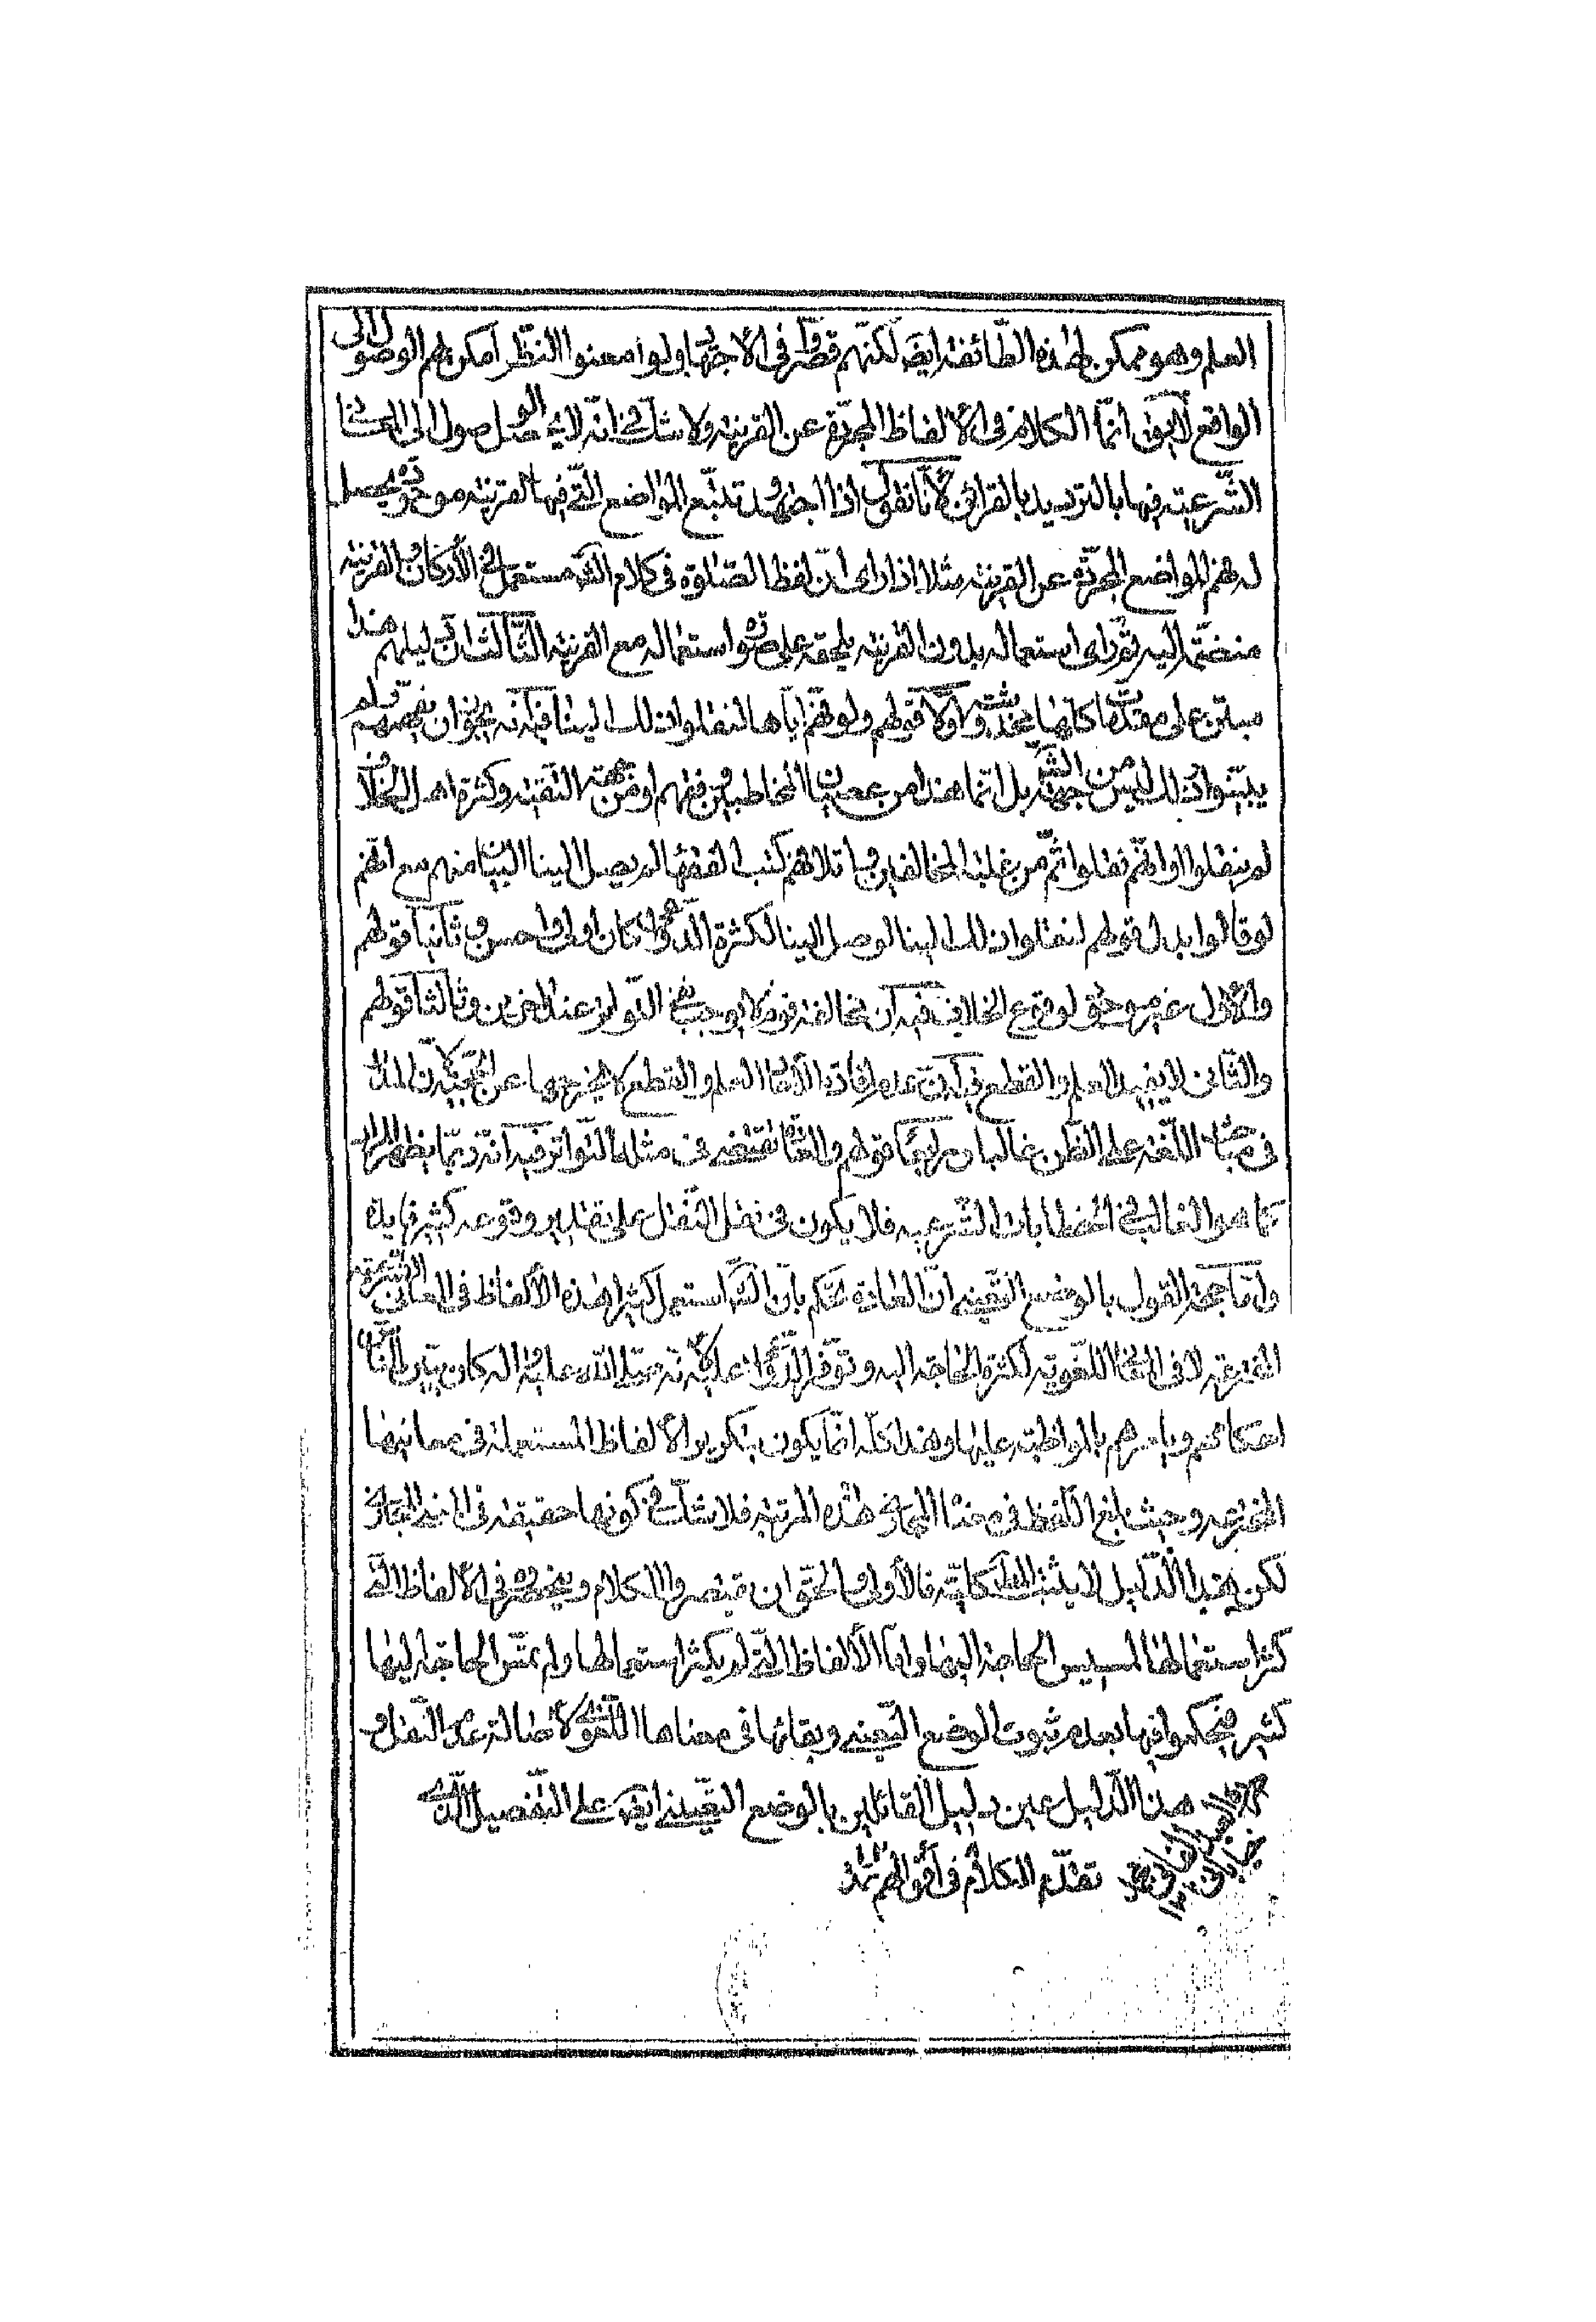 العلم وهو ممكن لهذه الطائفة ايضا لكنهم قصروا فى الاجتهاد ولو امعنوا النظر امكن لهم الوصول الى
الواقع لا يق انما الكلام فى الالفاظ المجردة عن القرينة ولا شك فى انه لا يحصل الوصول الى المعنى
الشرعية فيها بالترديد بالقرائن لانا نقول اذا اجتهد و تتبع المواضع التى فيها القرينة موجودة يحصل
له فهم المواضع المجردة عن القرينة مثلا اذا راى ان لفظ الصلوة فى كلام الش مستعمل فى الاركان والقرينة
منضمة اليه ثم راى استعماله بدون القرينة يلحقه على نحو استعماله مع القرينة الثالث ان دليلهم هذا
مبتن على مقدمات كلها مخدوشة اولا قولهم ولو فهم اياها لنقلوا ذلك الينا فيه انه يجوز ان نفهمهم فلم
يبينوا ذلك ليس من جهة الش بل انما هذا من المخاطبين فيهم او من جهة التقية وكثرة اهل الخلاف
لم ينقلوا او انهم نقلوا ثم من غلبة المخالفين و اتلافهم كتب الفقهاء لم يصل الينا البيان منهم مع انهم
لو قالوا بدل قولهم لنقلوا ذلك الينا لوصل الينا لكثرة الدواعى كان اولى و احسن و ثانيا قولهم
والاول غير موجود لوقوع الخلاف فيه ان مخالفة قوم لا يوجب نفى التواتر عند الاخرين وثالثا قولهم
والثانى لا يفيد العلم والقطع فيه ان عدم افادة الاحاد العلم والقطع لا يخرجها عن الحجية لان المدار
فى مباحث اللغة على الظن غالبا ورابعا قولهم والعادة تقتضى فى مثله بالتواتر فيه انه ربما يظهر المراد
كما هو الغالب فى الخطابات الشرعية فلا يكون فى نقل النقل على تقدير وقوعه كثير فايدة
واما حجة القول بالوضع التعينى ان العادة تحكم بان الش استعمل كثيرا هذه الالفاظ فى المعانى الشرعية
المخترعة لا فى المعانى اللغوية لكثرة الحاجة اليه و توفر الدواعى عليه لانه صلى الله عليه و اله كان يبين للناس
احكامهم ويامرهم بالمواظبة عليها وهذا كله انما يكون بتكرير الالفاظ المستعملة فى معانيها
المخترعة وحيث بلغ اللفظ فى معناه المجازى هذه المرتبة فلا شك فى كونها حقيقة فى المعنى المجازى
لكن هذا الدليل لا يثبت المدعى كلية فالاولى والحق ان يقتصروا الكلام ويخصصه فى الالفاظ التى
كثر استعمالها لمسيس الحاجة اليها واما الالفاظ التى لم يكثر استعمالها ولم تمس الحاجة اليها
كثير فيحكموا فيها بعدم ثبوت الوضع التعينى وبقائها فى معناها اللغوى لاصالة عدم النقل و
هذا الدليل عين دليل القائلين بالوضع التعينى ايضا على التفصيل الذى
تقدم الكلام فى اقوالهم تمت